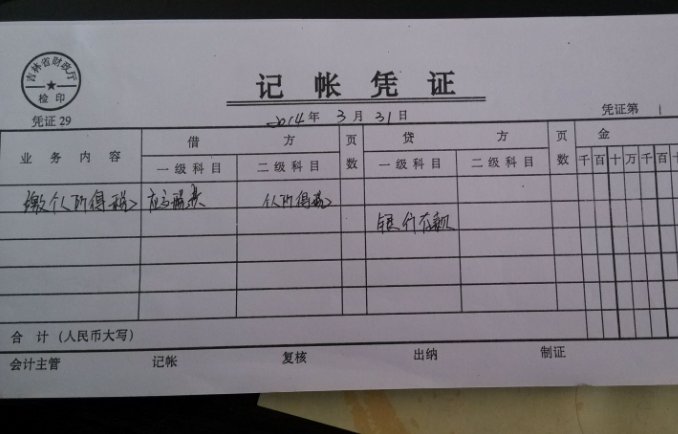 吉林省财政厅
检印
记帐凭证
凭证 29
2014年 3月 31日
凭证第 1
业务内容 借方 页数 贷方 页数 金
一级科目 二级科目 一级科目 二级科目 千百十万千百十
缴个人所得税 个人所得税
银行存款
合 计（人民币大写）
会计主管 记帐 复核 出纳 制证